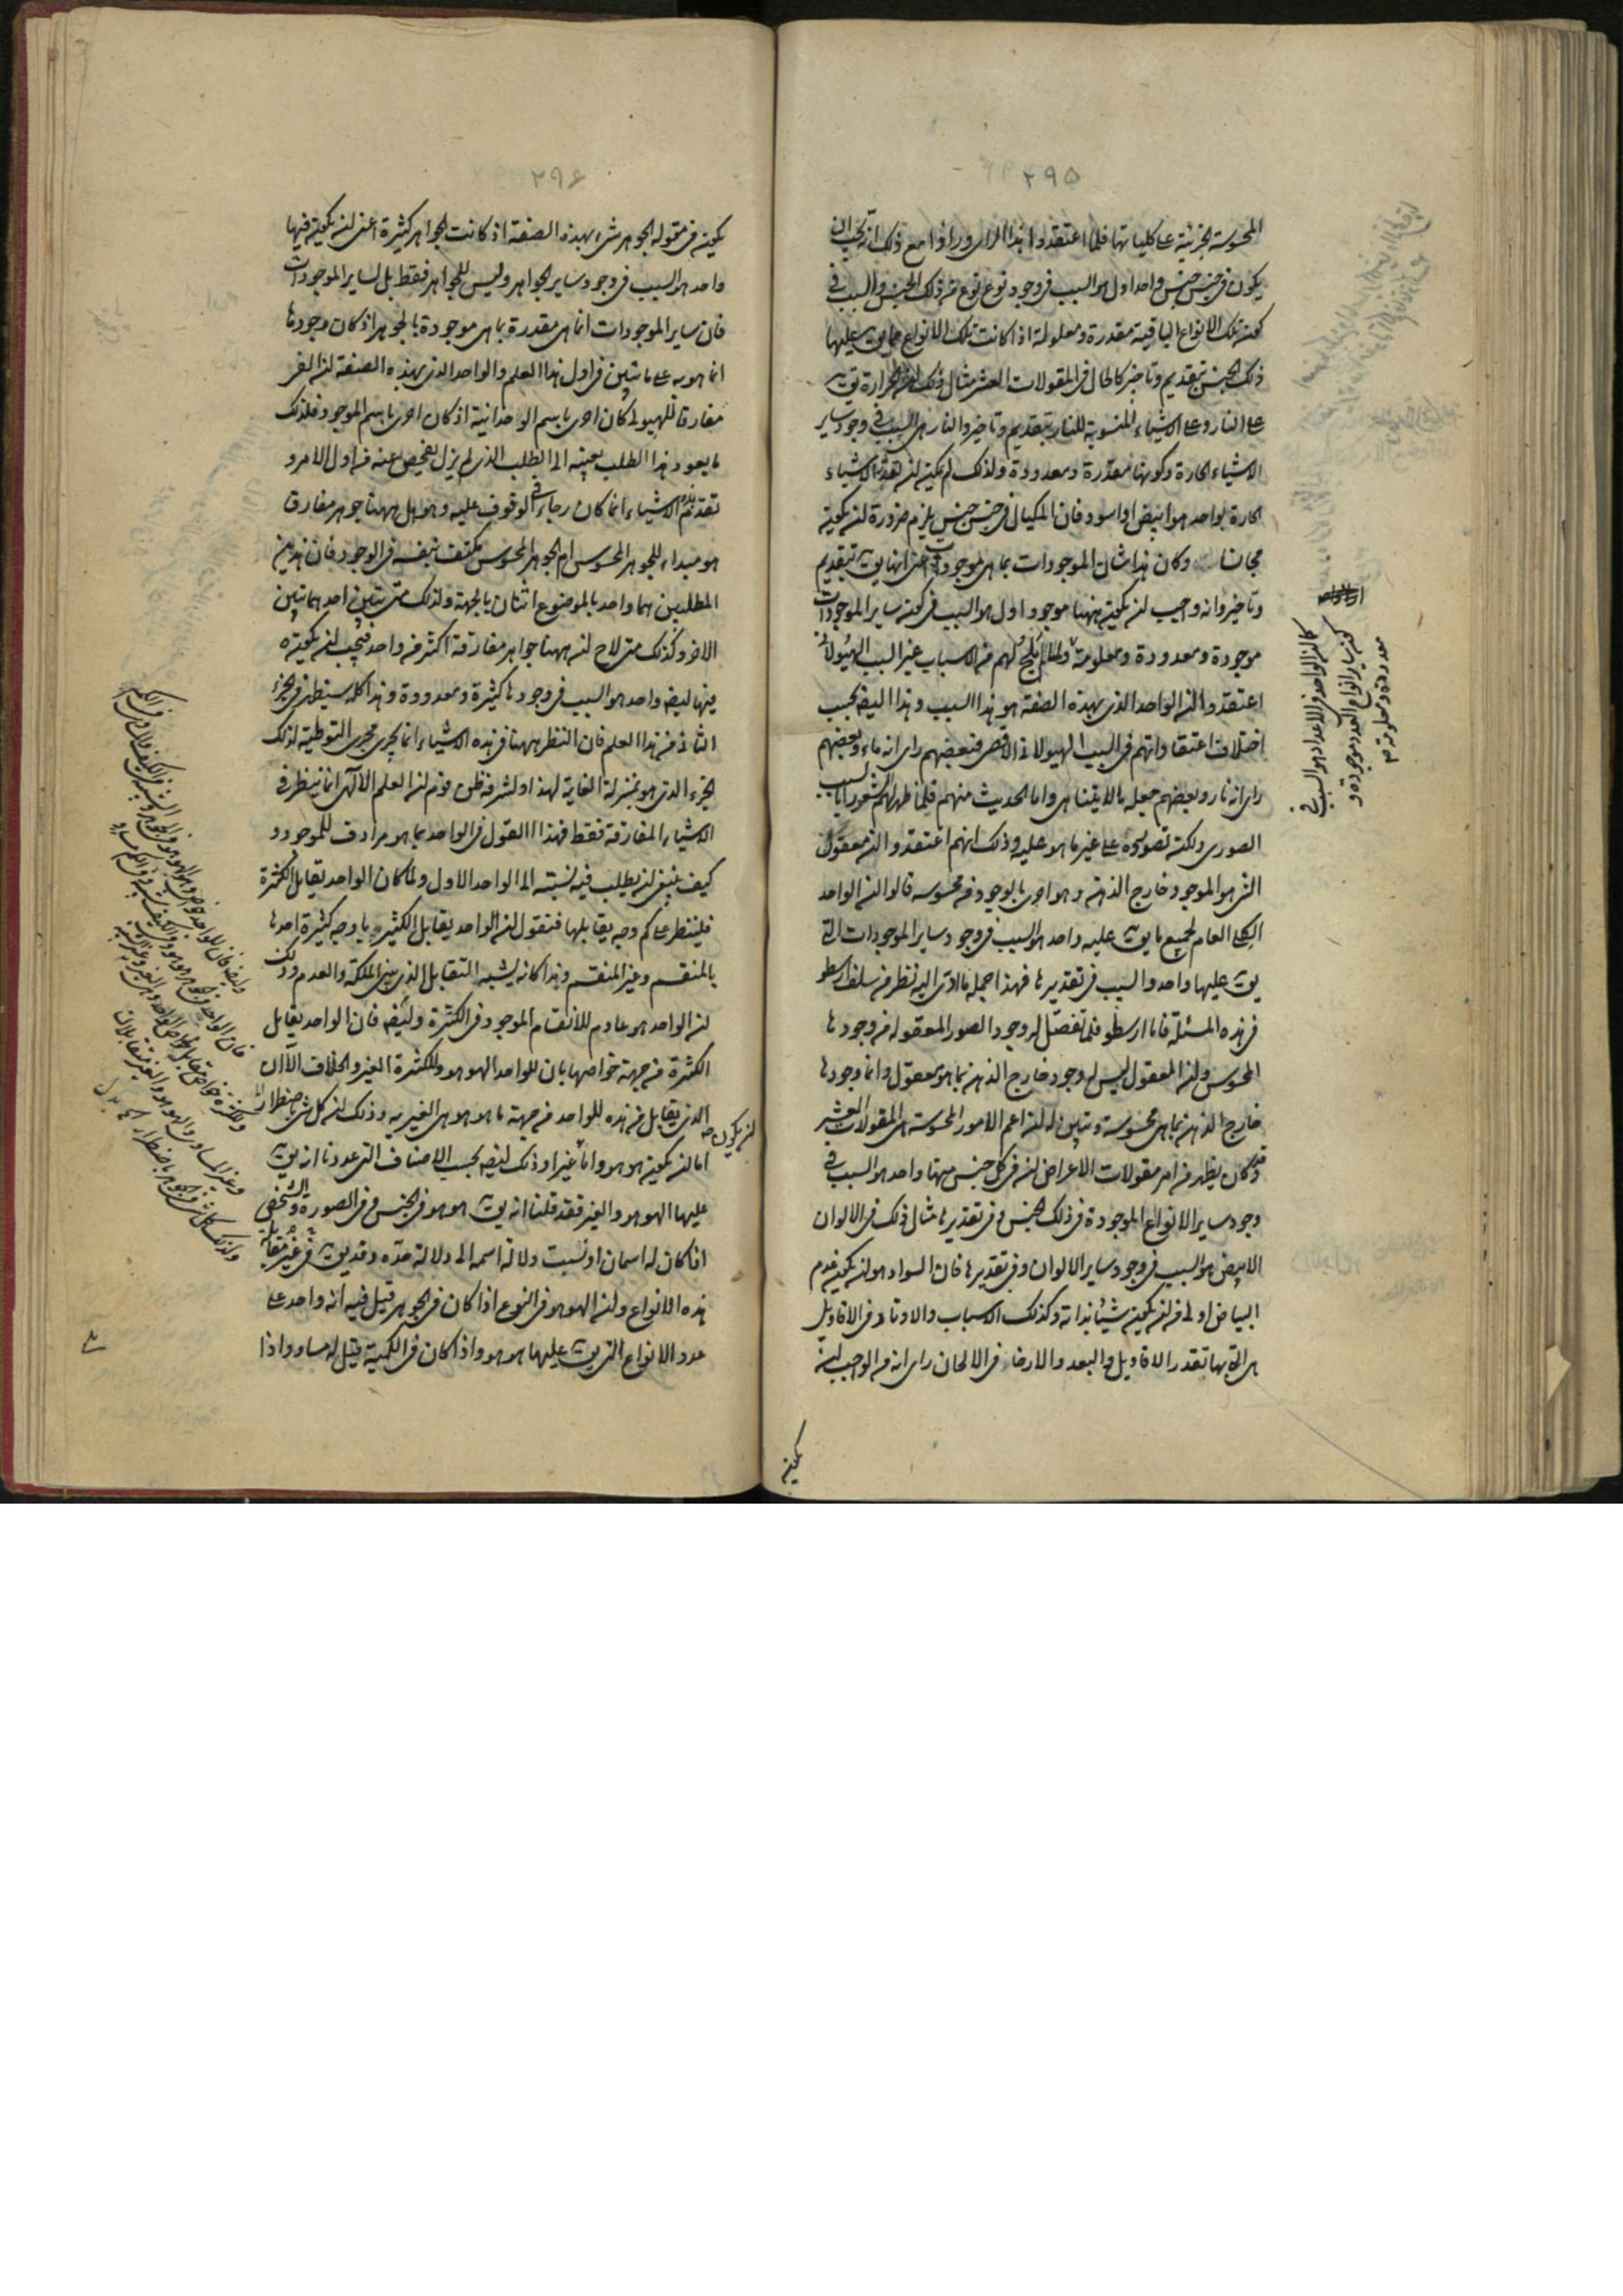 ٢٩٥
المحسوسة الجزئية على كلياتها فلما اعتقدوا هذا الراى وراوا مع ذلك انه يجب ان
يكون فى جنس جنس واحد اول هو السبب فى وجود نوع نوع من ذلك الجنس والسبب فى
كون تلك الانواع الباقية مقدرة ومعلولة اذا كانت تلك الانواع مما يق عليها
ذلك الجنس بتقديم وتاخير كالحال فى المقولات العشر مثال ذلك الحرارة يق
على النار وعلى الاشياء المنسوبة للنار بتقديم وتاخير والنار هى السبب فى وجود ساير
الاشياء الحارة وكونها مقدرة ومعدودة ولذلك لم يمكن ان تقدر الاشياء
الحارة بواحد هو ابيض او اسود فان المكيال فى جنس جنس يلزم ضرورة ان يكون
مجانسا وكان هذا شان الموجودات بما هى موجودات اعنى انها يق بتقديم
وتاخير وانه واجب ان يكون ههنا موجود اول هو السبب فى كون ساير الموجودات
موجودة ومعدودة ومعلومة ولما لم يلح لهم من الاسباب غير السبب الهيولانى
اعتقدوا ان الواحد الذى بهذه الصفة هو هذا السبب وهذا اليضا بحسب
اختلاف اعتقاداتهم فى السبب الهيولانى الاقصى فبعضهم راى انه ماء وبعضهم
راى انه نار وبعضهم جعله ما لا يتناهى واما الحديث منهم فلما ظهر لهم شعور ما بالسبب
الصورى ولكن تصوروه على غير ما هو عليه وذلك انهم اعتقدوا ان معقول
الشى هو الموجود خارج الذهن وهو احرى بالوجود من محسوسه قالوا ان الواحد
الكلى العام لجميع ما يق عليه واحد هو السبب فى وجود ساير الموجودات التى
يق عليها واحد والسبب فى تقديرها فهذا جملة ما ادى اليه نظر من سلف ارسطو
فى هذه المسئلة فاما ارسطو فلما تفصل له وجود الصور المعقولة من وجودها
المحسوس وان المعقول ليس له وجود خارج الذهن بما هو معقول وانما وجودها
خارج الذهن بما هى محسوسة وتبين له ان اعم الامور المحسوسة هى المقولات العشر
وقد كان يظهر من امر مقولات الاعراض ان فى كل جنس منها واحد هو السبب فى
وجود ساير الانواع الموجودة فى ذلك الجنس وفى تقديرها مثال ذلك فى الالوان
الابيض هو السبب فى وجود ساير الالوان وفى تقديرها فان السواد هو ان يكون عدم
البياض اولى من ان يكون شيئا بذاته وكذلك الاسباب والاوتاد فى الاقاويل
هى التى بها تقدر الاقاويل والبعد والارخاء فى الالحان راى انه من الواجب ان
يكون
كما ان الواحد فى الاعداد هو السبب فى
كون ساير انواع العدد موجودة و
معدودة ومعلومة
٢٩٦
يكون فى مقولة الجوهر شى بهذه الصفة اذ كانت الجواهر كثيرة اعنى ان يكون فيها
واحد هو السبب فى وجود ساير الجواهر وليس للجواهر فقط بل لساير الموجودات
فان ساير الموجودات انما هى مقدرة بما هى موجودة بالجوهر اذ كان وجودها
انما هو به على ما تبين فى اول هذا العلم والواحد الذى بهذه الصفة ان الفى
مفارقا للهيولى كان احرى باسم الواحدانية اذ كان احرى باسم الموجود فلذلك
ما يعود هذا الطلب بعينه الى الطلب الذى لم يزل يفحص عنه من اول الامر و
تقدم الاشياء انما كان رجاء فى الوقوف عليه وهو هل ههنا جوهر مفارق
هو مبداء للجوهر المحسوس ام الجوهر المحسوس مكتف بنفسه فى الوجود فان هذين
المطلبين هما واحد بالموضوع اثنان بالجهة ولذلك متى تبين احدهما تبين
الاخر وكذلك متى لاح ان ههنا جواهر مفارقة اكثر من واحد فيجب ان يكون
فيها ايضا واحد هو السبب فى وجودها كثيرة ومعدودة وهذا كله سينظر فى الجزء
الثانى من هذا العلم فان النظر ههنا فى هذه الاشياء انما يجرى مجرى التوطية لذلك
الجزء الذى هو بمنزلة الغاية لهذا ولشرفه ظن قوم ان العلم الالهى انما ينظر فى
الاشياء المفارقة فقط فهذا القول فى الواحد بما هو مرادف للموجود و
كيف ينبغى ان يطلب فيه نسبته الى الواحد الاول ولما كان الواحد يقابل الكثرة
فلينظر على كم وجه يقابلها فنقول ان الواحد يقابل الكثير باوجه كثيرة احدها
بالمنقسم وغير المنقسم وهذا كانه يشبه التقابل الذى بين الملكة والعدم وذلك
ان الواحد هو عادم للانقسام الموجود فى الكثرة وايضا فان الواحد يقابل
الكثرة من جهة خواصها بان للواحد الهو هو وللكثرة الغير والخلاف الا ان
الذى يقابل من هذه للواحد من جهة ما هو هو هى الغيرية وذلك ان كل شى باضطرار
ان يكون
اما ان يكون هو هو واما غيرا وذلك ايضا بحسب الاصناف التى عددنا انه يق
عليها الهو هو والغير فقد قلنا انه يق هو هو فى الجنس وفى الصورة والشخص
اذا كان له اسمان او نسبت دلالة اسمه الى دلالة حده وقد يق فى غير مقابلة
هذه الانواع وان الهو هو فى النوع اذا كان فى الجوهر قيل فيه انه واحد على
عدد الانواع التى يق عليها هو هو واذا كان فى الكمية قيل له مساو واذا